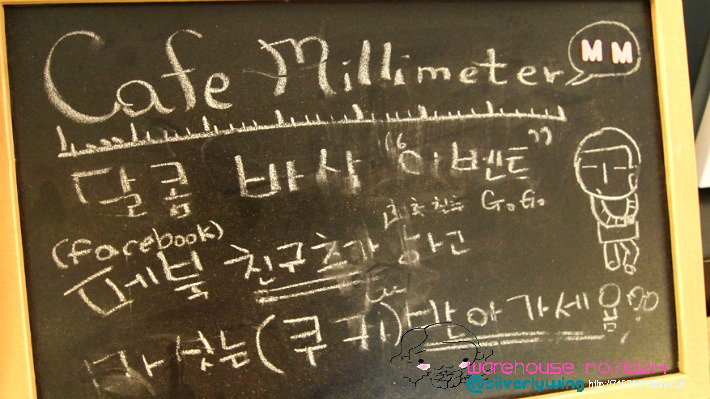 Cafe Millimeter
MM
달콤 바삭 "이벤트"
G.G.
(facebook)
페북 친구추가 하고
맛있는(쿠키)받아가세용
warehouse no.
@silverlywing http://